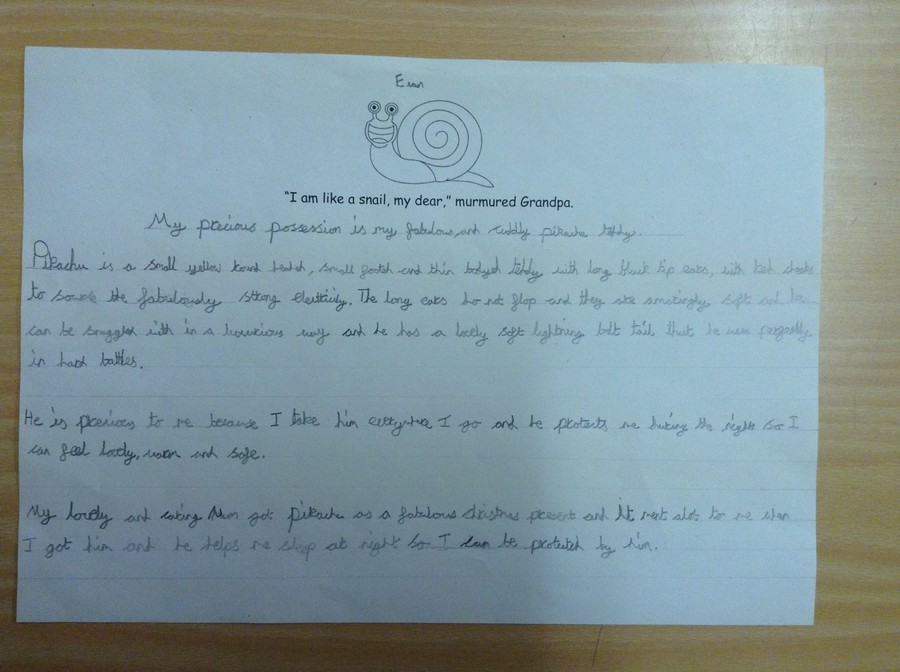 Euan
"I am like a snail, my dear," murmured Grandpa.
My precious possession is my fabulous, and cuddly pikachu teddy.
Pikachu is a small yellow round , small and thin teddy with long black tip ears, with red cheeks
to the fabulously strong electricity. The long ears do not flop and they are amazingly soft and
can be with in a luxurious way and he has a lovely soft lightning bolt tail that he
in hard battles.
He is precious to me because I take him I go and he protects me during the night so I
can feel lovely, warm and safe.
My lovely and caring Mum got pikachu as a fabulous christmas present and it ment alot to me when
I got him and he helps me sleep at night so I can be protected by him.